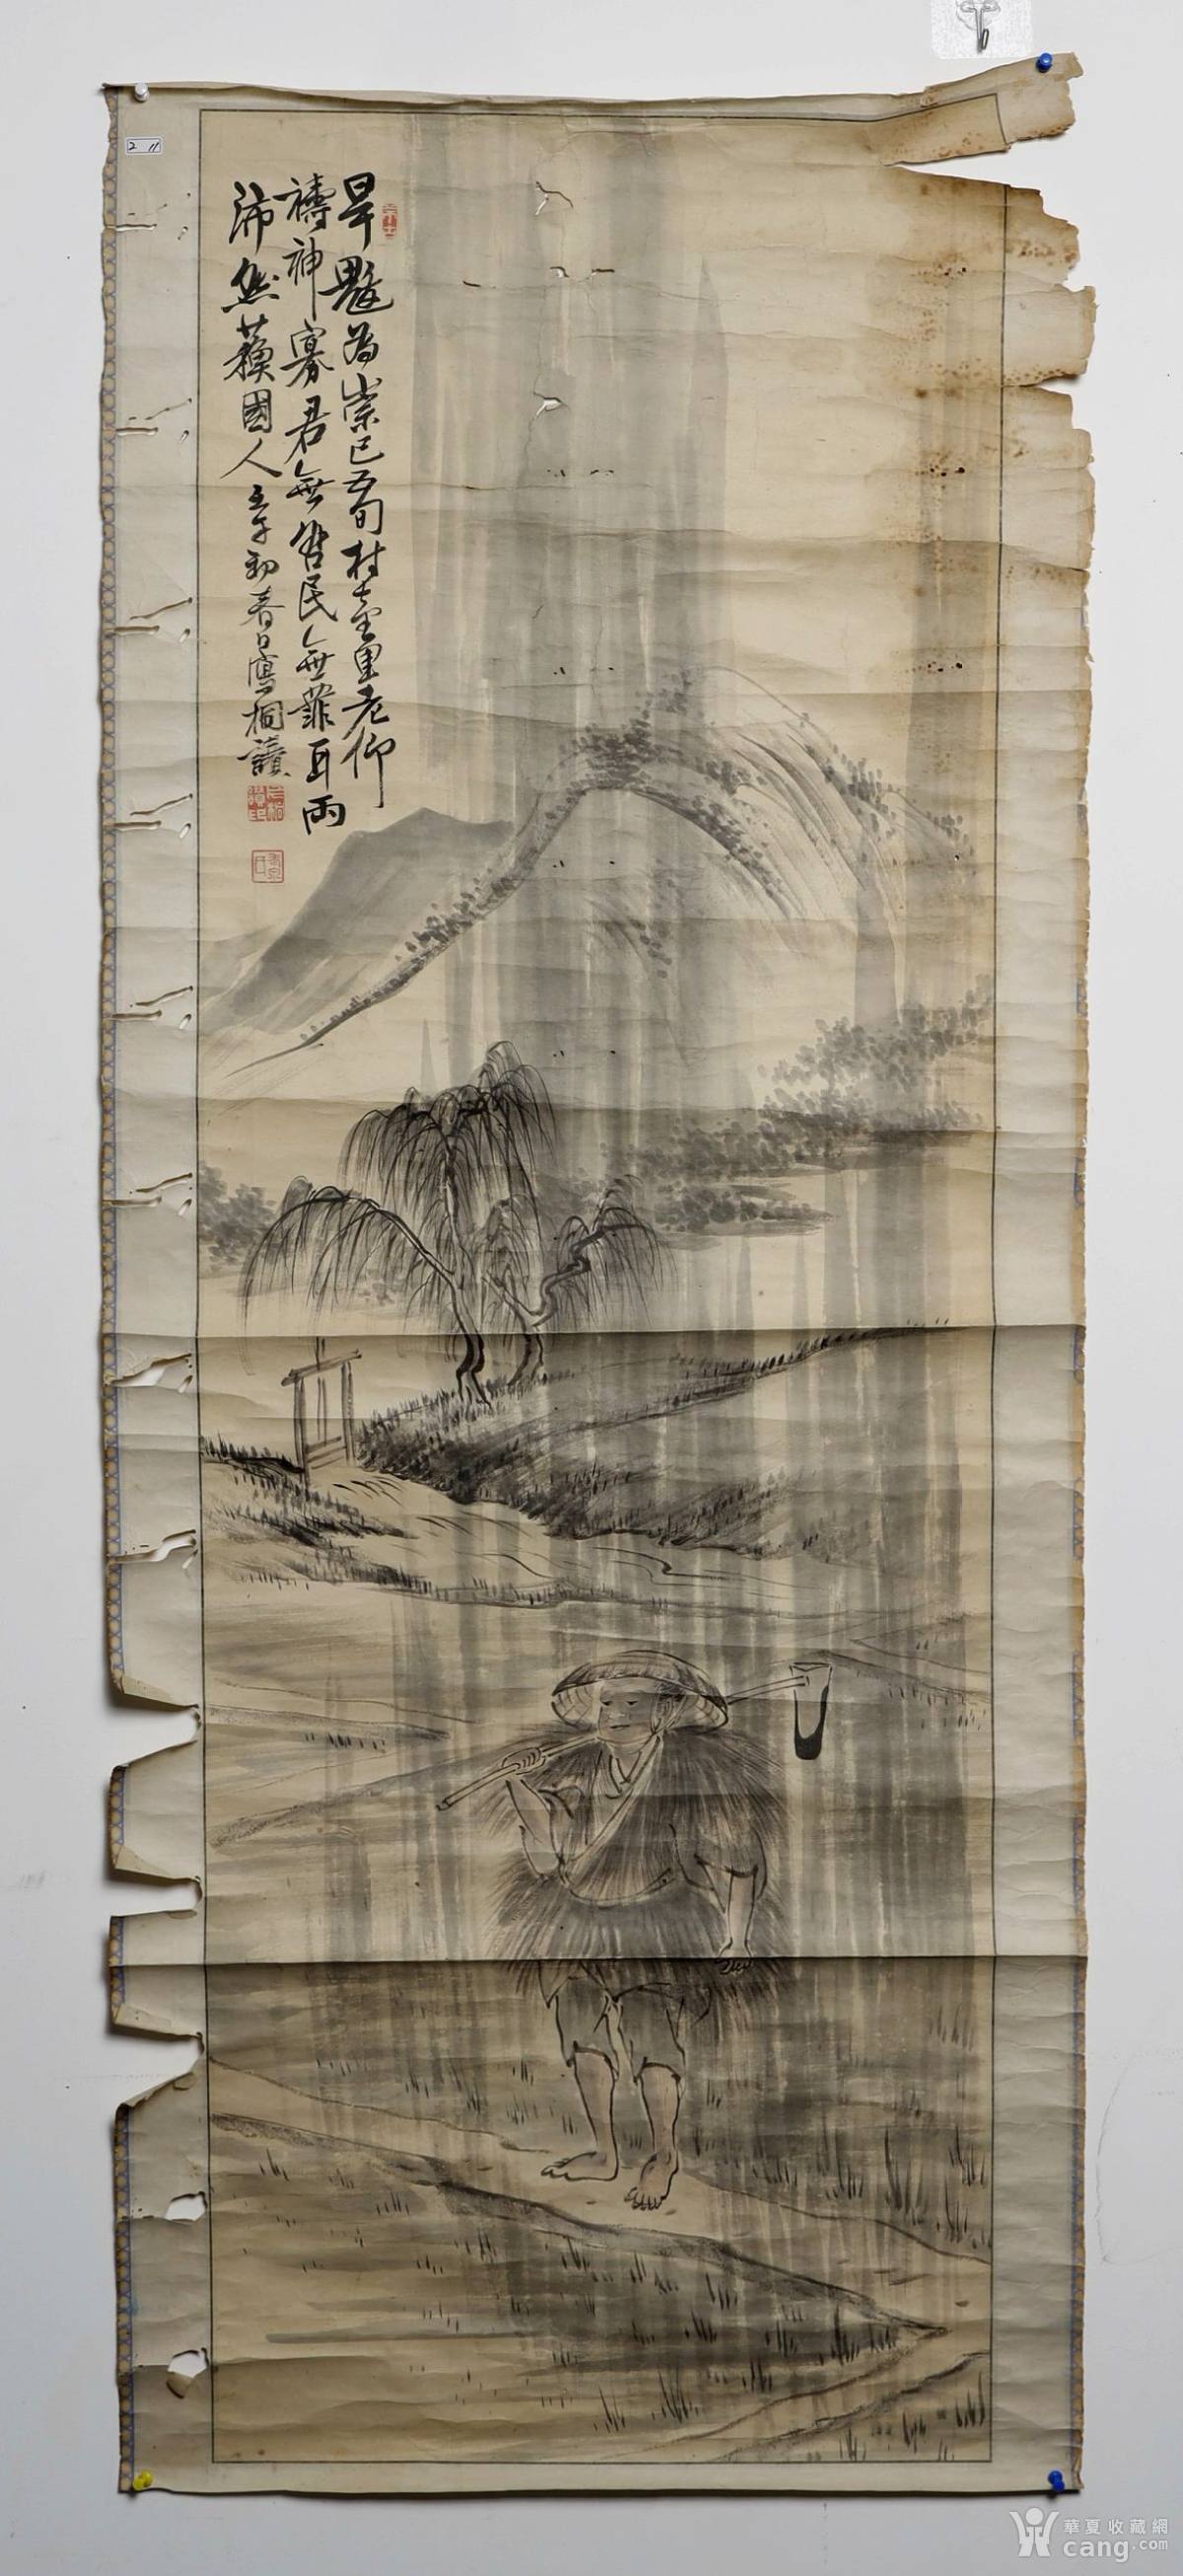 旱魃為祟已五旬村童里老仰
禱神寡君無咎民無罪甘雨
沛然蘇國人壬午初春日應桐讀
2 11
華夏收藏網
cang.com